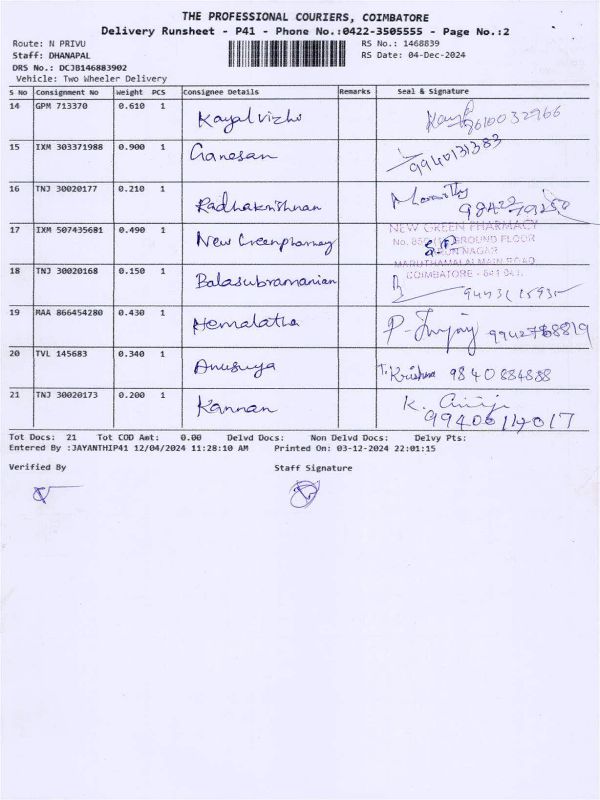 THE PROFESSIONAL COURIERS, COIMBATORE
Delivery Runsheet - P41 - Phone No.:0422-3505555 - Page No.:2
Route: N PRIVU RS No.: 1468839
Staff: DHANAPAL RS Date: 04-Dec-2024
DRS No.: DCJB146883902
Vehicle: Two Wheeler Delivery
S No Consignment No Weight PCS Consignee Details Remarks Seal & Signature
14 GPM 713370 0.610 1 Kayalvizhi 9610032966
15 IXM 303371988 0.900 1 Ganesan 9940131383
16 TNJ 30020177 0.210 1 Radhakrishnan
17 IXM 507435681 0.490 1 New Greenpharmacy
NEW GREEN PHARMACY
GROUND FLOOR
NAGAR
MARUTHAMALAI MAIN ROAD
COIMBATORE - 641 041.
18 TNJ 30020168 0.150 1 Balasubramanian
19 MAA 866454280 0.430 1 Hemalatha
20 TVL 145683 0.340 1 Anusuya T. Krishna 9840884888
21 TNJ 30020173 0.200 1 Kannan K.
Tot Docs: 21 Tot COD Amt: 0.00 Delvd Docs: Non Delvd Docs: Delvy Pts:
Entered By :JAYANTHIP41 12/04/2024 11:28:10 AM Printed On: 03-12-2024 22:01:15
Verified By Staff Signature